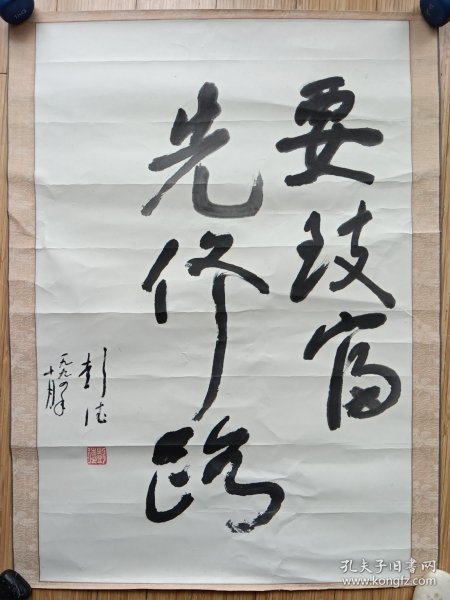 要致富
先修路
彭德
一九九〇年
十月
孔夫子旧书网
www.kongfz.com